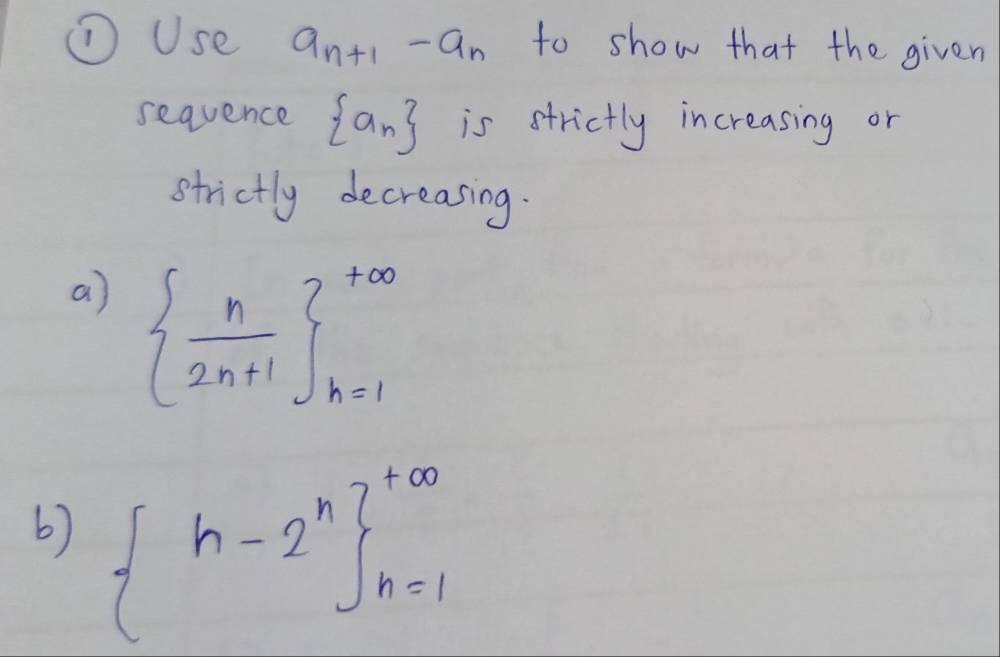 ① Use aₙ₊₁ - aₙ to show that the given
sequence {aₙ} is strictly increasing or
strictly decreasing.
a) { n / 2n+1 }ₙ₌₁^+∞
b) { n - 2ⁿ }ₙ₌₁^+∞